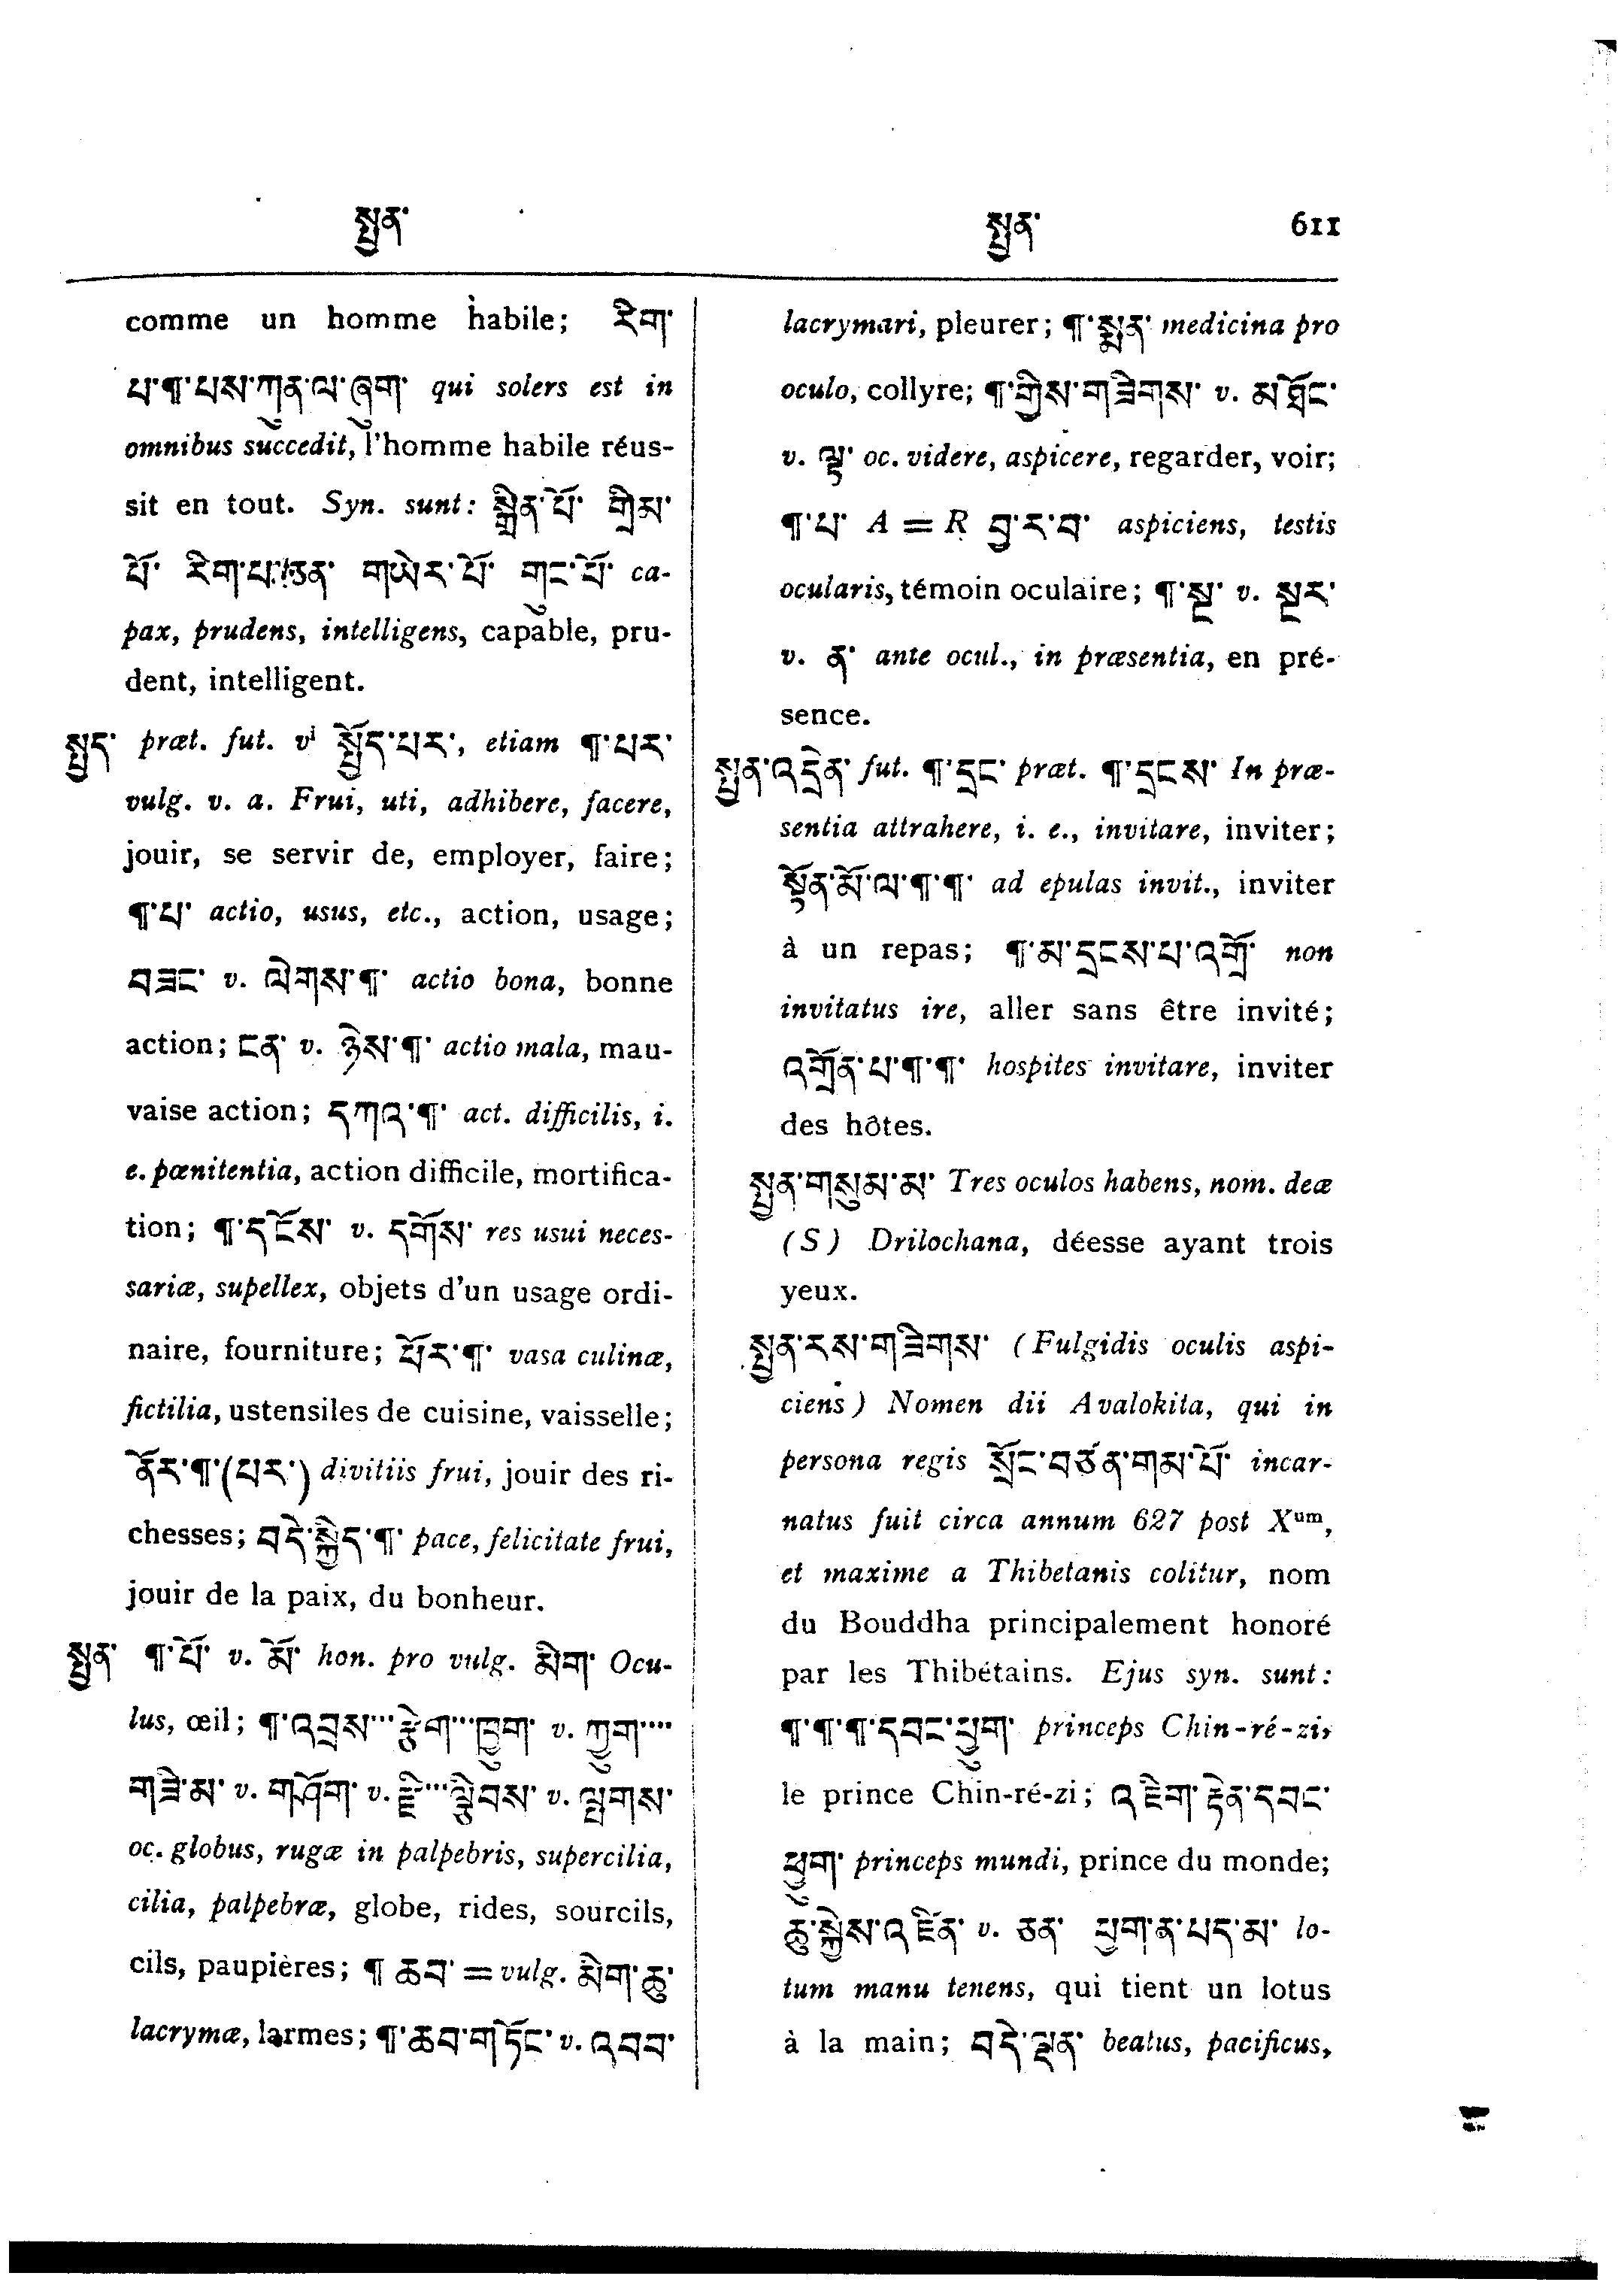 སྤྱན་
སྤྱན་ 611
comme un homme habile; རིག་
པ་¶་པས་ཀུན་ལ་ཞུག་ qui solers est in
omnibus succedit, l'homme habile réus-
sit en tout. Syn. sunt: སྒྲིན་པོ་ གྲིམ་
པོ་ རིག་པ་ཅན་ གཡེར་པོ་ གུང་པོ་ ca-
pax, prudens, intelligens, capable, pru-
dent, intelligent.
སྤྱད་ præt. fut. vⁱ སྤྱོད་པར་, etiam ¶་པར་
vulg. v. a. Frui, uti, adhibere, facere,
jouir, se servir de, employer, faire;
¶་པ་ actio, usus, etc., action, usage;
བཟང་ v. ལེགས་¶་ actio bona, bonne
action; ངན་ v. ཉེས་¶་ actio mala, mau-
vaise action; དཀའ་¶་ act. difficilis, i.
e. pœnitentia, action difficile, mortifica-
tion; ¶་དངོས་ v. དགོས་ res usui neces-
sariæ, supellex, objets d'un usage ordi-
naire, fourniture; ཕོར་¶་ vasa culinæ,
fictilia, ustensiles de cuisine, vaisselle;
ནོར་¶་(པར་) divitiis frui, jouir des ri-
chesses; བདེ་སྐྱིད་¶་ pace, felicitate frui,
jouir de la paix, du bonheur.
སྤྱན་ ¶་པོ་ v. མོ་ hon. pro vulg. མིག་ Ocu-
lus, œil; ¶་འབྲས་··· རྩེག་···ཁྱུག་ v. ཀྱུག་····
གཟི་མ་ v. གཤོག་ v. རྫི་··· ལྕེབས་ v. ལྤགས་
oc. globus, rugæ in palpebris, supercilia,
cilia, palpebræ, globe, rides, sourcils,
cils, paupières; ¶ ཆབ་ = vulg. མིག་ཆུ་
lacrymæ, larmes; ¶་ཆབ་གཏོང་ v. འབབ་
lacrymari, pleurer; ¶་སྨན་ medicina pro
oculo, collyre; ¶་གྱིས་གཟིགས་ v. མཐོང་
v. ལྟ་ oc. videre, aspicere, regarder, voir;
¶་པ་ A = R བྱ་ར་བ་ aspiciens, testis
ocularis, témoin oculaire; ¶་སྔ་ v. སྔར་
v. ན་ ante ocul., in præsentia, en pré-
sence.
སྤྱན་འདྲེན་ fut. ¶་དྲང་ præt. ¶་དྲངས་ In præ-
sentia attrahere, i. e., invitare, inviter;
སྟོན་མོ་ལ་¶་¶་ ad epulas invit., inviter
à un repas; ¶་མ་དྲངས་པ་འགྲོ་ non
invitatus ire, aller sans être invité;
འགྲོན་པ་¶་¶་ hospites invitare, inviter
des hôtes.
སྤྱན་གསུམ་མ་ Tres oculos habens, nom. deæ
(S) Drilochana, déesse ayant trois
yeux.
སྤྱན་རས་གཟིགས་ (Fulgidis oculis aspi-
ciens) Nomen dii Avalokita, qui in
persona regis སྲོང་བཙན་གམ་པོ་ incar-
natus fuit circa annum 627 post Xᵘᵐ,
et maxime a Thibetanis colitur, nom
du Bouddha principalement honoré
par les Thibétains. Ejus syn. sunt:
¶་¶་¶་དབང་ཕྱུག་ princeps Chin-ré-zi,
le prince Chin-ré-zi; འཇིག་རྟེན་དབང་
ཕྱུག་ princeps mundi, prince du monde;
ཆུ་སྐྱེས་འཛིན་ v. ཅན་ ཕྱག་ན་པད་མ་ lo-
tum manu tenens, qui tient un lotus
à la main; བདེ་ལྡན་ beatus, pacificus,